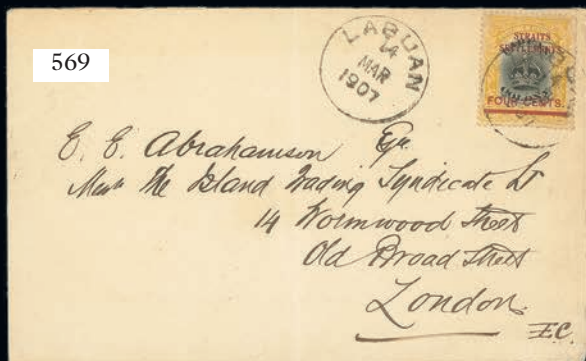 569
LABUAN
14
MAR
1907
STRAITS
SETTLEMENTS.
FOUR CENTS.
E. E. Abrahamson Esqr.
Messrs The Island Trading Syndicate Lt
14 Wormwood Street
Old Broad Street
London
E.C.